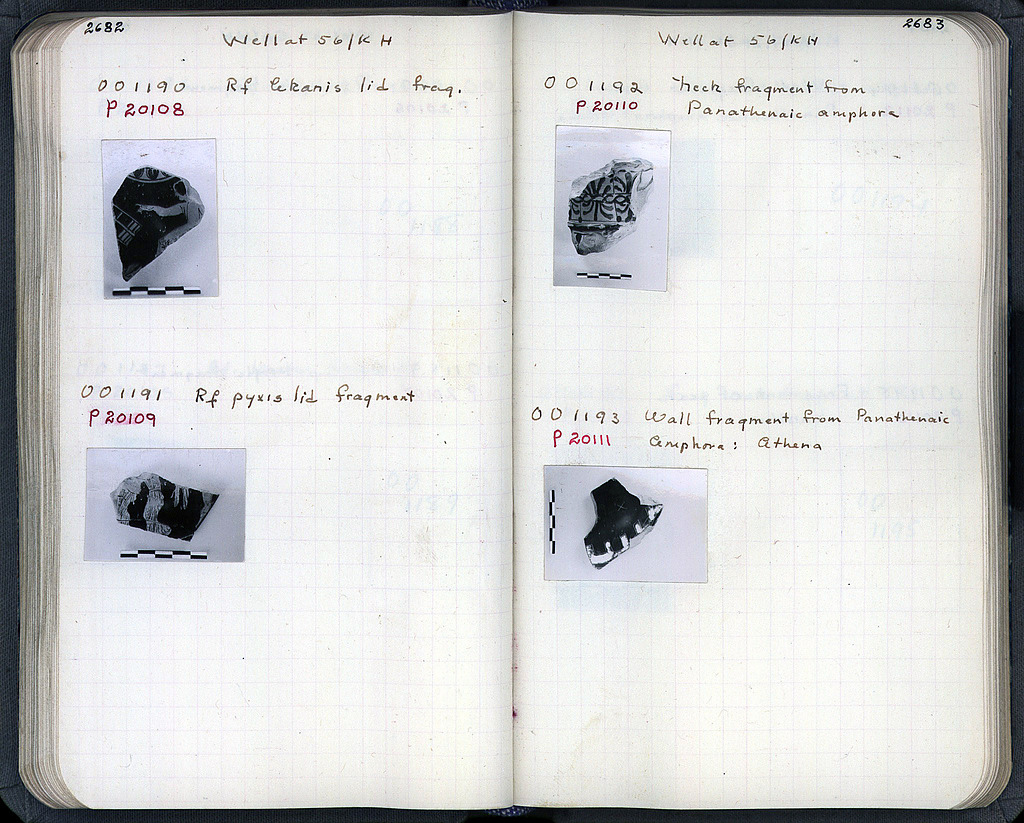 2682
Well at 56/KH
OO 1190 Rf lekanis lid frag.
P 20108
OO 1191 Rf pyxis lid fragment
P 20109
2683
Well at 56/KH
OO 1192 Neck fragment from
P 20110 Panathenaic amphora
OO 1193 Wall fragment from Panathenaic
P 20111 amphora: Athena